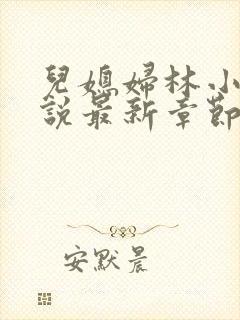 兒媳婦林小
說最新章節
安默晨